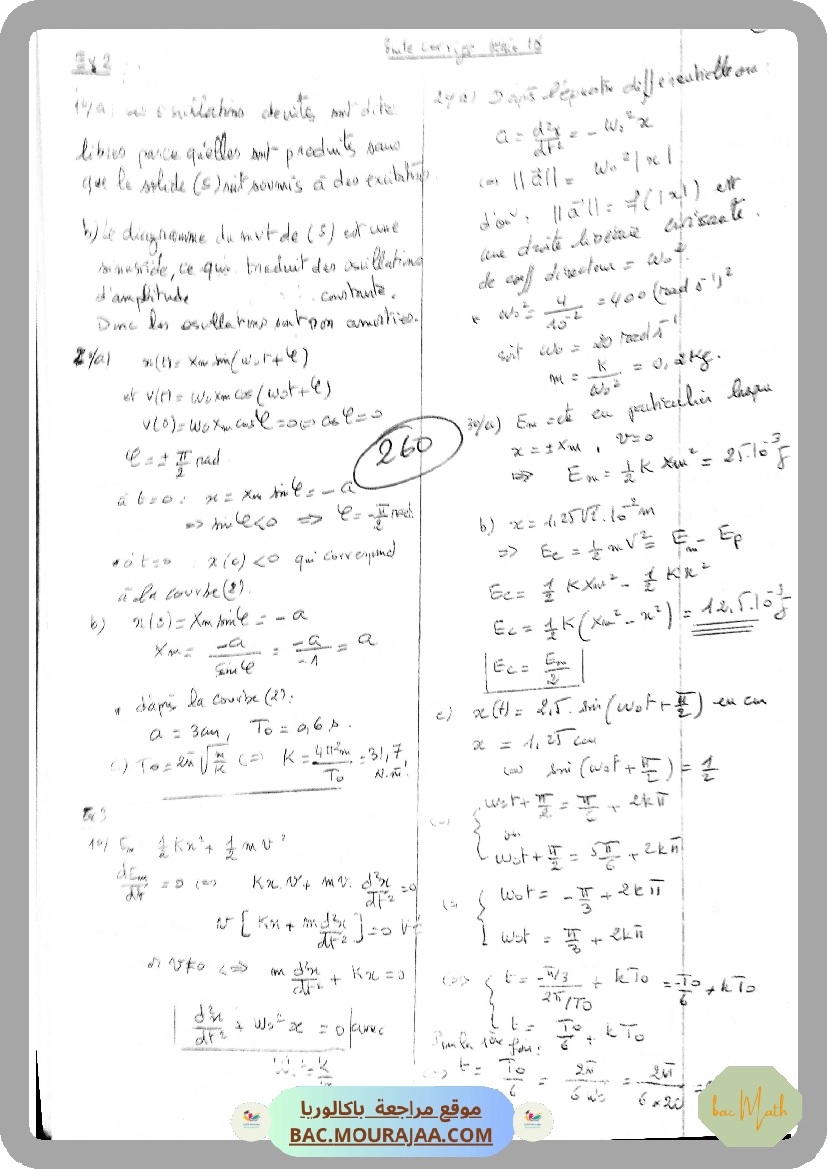 Suite corrigé série 10
Ex 2
1°/a) Les oscillations de (S) sont dites
libres parce qu'elles sont produits sans
que le solide (S) soit soumis à des excitations
b) Le diagramme du mvt de (S) est une
sinusoïde, ce qui traduit des oscillations
d'amplitude constante.
Donc les oscillations sont non amorties.
2°/a) x(t) = Xm sin(ω₀t + φ)
et v(t) = ω₀ Xm cos(ω₀t + φ)
v(0) = ω₀ Xm cos φ = 0 ⇔ cos φ = 0
φ = ± π/2 rad
à t=0 : x = Xm sin φ = -a
⇒ sin φ < 0 ⇒ φ = -π/2 rad.
* à t=0 : x(0) < 0 qui correspond
à la courbe (2).
b) x(0) = Xm sin φ = -a
Xm = -a/sin φ = -a/-1 = a
* d'après la courbe (2):
a = 3cm, T₀ = 0,6 s.
c) T₀ = 2π√(m/K) ⇔ K = 4π²m/T₀ = 31,7 N.m⁻¹
Ex 3
1°/ Em 1/2 Kx² + 1/2 m v²
dEm/dt = 0 ⇔ Kx.v + mv. d²x/dt² = 0
v [Kx + m d²x/dt²] = 0
v ≠ 0 ⇔ m d²x/dt² + Kx = 0
d²x/dt² + ω₀² x = 0 avec
260
2°/a) D'après l'équation différentielle on a :
a = d²x/dt² = - ω₀² x
⇔ ||a⃗|| = ω₀² |x|
d'où : ||a⃗|| = f(|x|) est
une droite linéaire croissante.
de coeff directeur = ω₀².
* ω₀² = 4/10⁻² = 400 (rad s⁻¹)²
soit ω₀ = 20 rad s⁻¹
m = K/ω₀² = 0,2 kg.
3°/a) Em = cte en particulier lorsque
x = ± Xm, v = 0
⇒ Em = 1/2 K Xm² = 25.10⁻³ J
b) x = 1,25√2.10⁻² m
⇒ Ec = 1/2 m V² = Em - Ep
Ec = 1/2 K Xm² - 1/2 K x²
Ec = 1/2 K (Xm² - x²) = 12,5.10⁻³ J
Ec = Em/2
c) x(t) = 2,5. sin(ω₀t + π/2) en cm
x = 1,25 cm
⇔ sin(ω₀t + π/2) = 1/2
⇔ { ω₀t + π/2 = π/6 + 2kπ
ou
ω₀t + π/2 = 5π/6 + 2kπ
⇔ { ω₀t = -π/3 + 2kπ
ω₀t = π/3 + 2kπ
⇔ { t = (-π/3)/(2π/T₀) + kT₀ = -T₀/6 + kT₀
t = T₀/6 + kT₀
Pour la 1ère fois :
t = T₀/6 = 2π/6ω₀ = 2π/6×20 =
موقع مراجعة باكالوريا
BAC.MOURAJAA.COM
bac Math